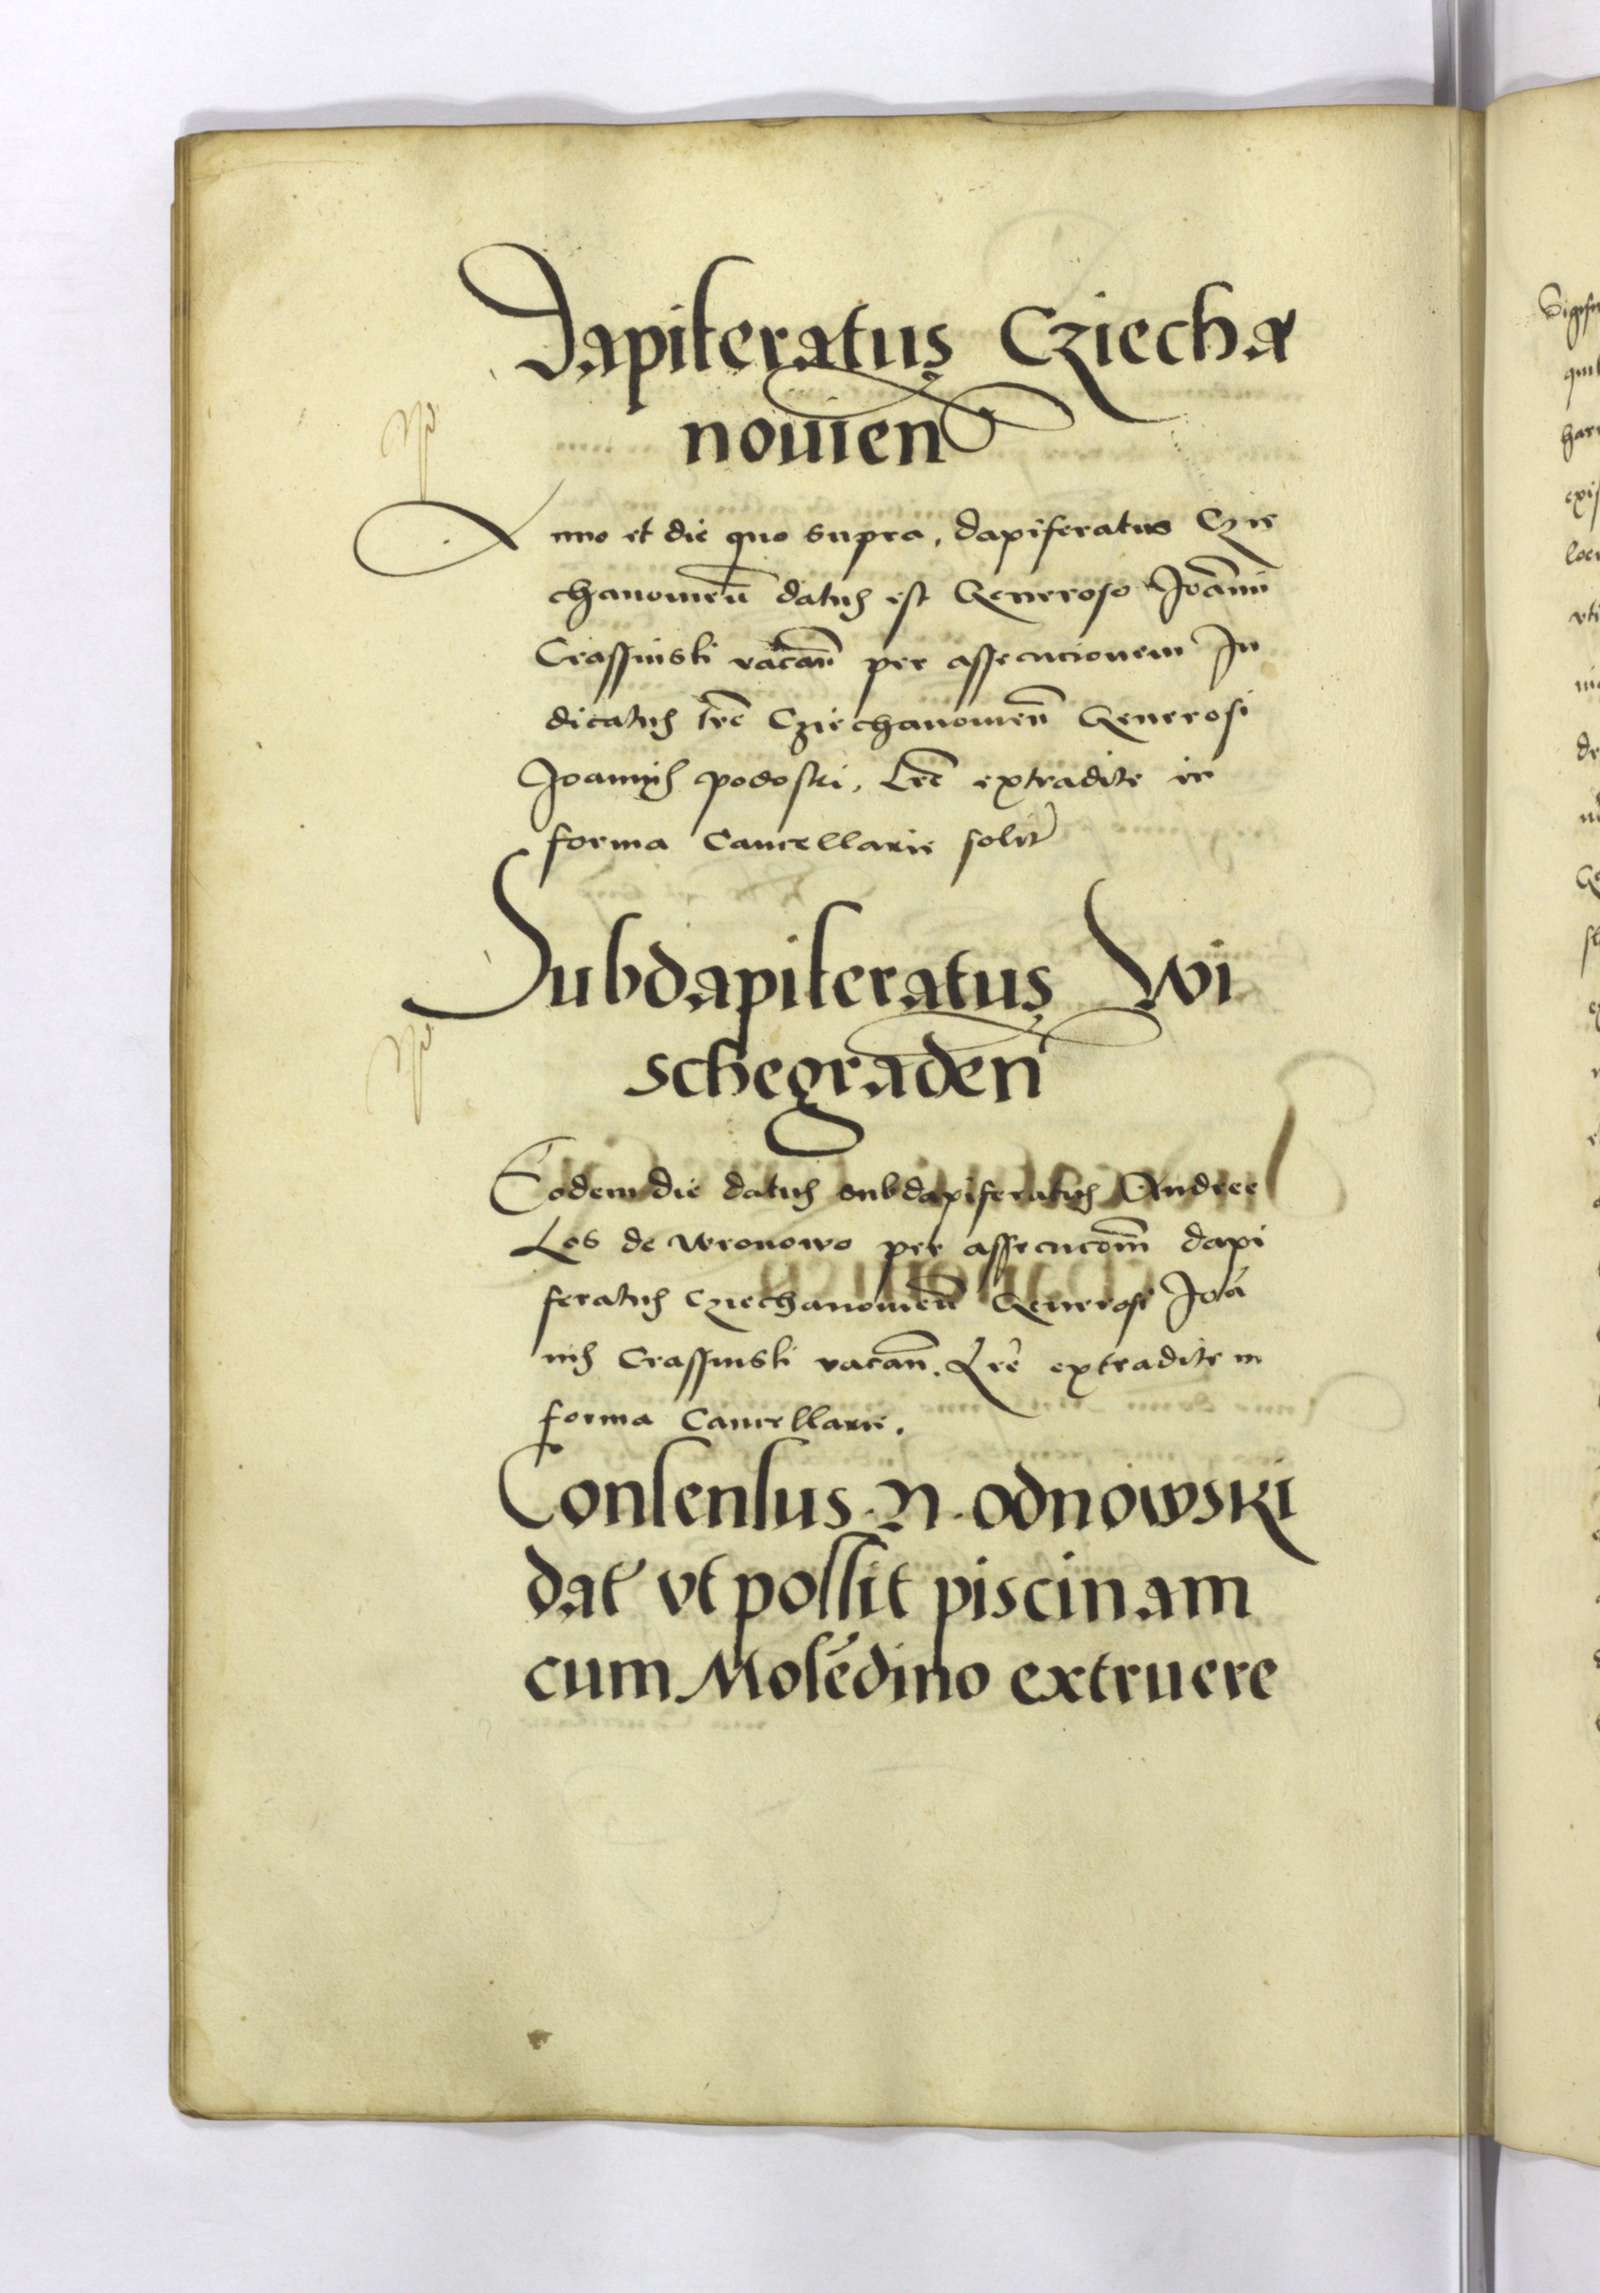 Dapiferatus Cziecha
nouien
Anno et die quo supra, dapiferatus Czie
chanouien̄ datus est Generoso Joānni
Crassinski vacan̄ per assecucionem Ju
dicatus tr̄e Cziechanouien̄ Generosi
Joannis Podoski, Lr̄e extradite in
forma Cancellarie solit
Subdapiferatus Wi
schegraden
Eodem die datus subdapiferatus Andree
Los de Wronowo per assecucōm dapi
feratus Cziechanouien̄ Generosi Joā
nis Crassinski vacan̄. Lr̄e extradite in
forma Cancellarie.
Consensus . N . Odnowski
dat vt possit piscinam
cum Molēdino extruere